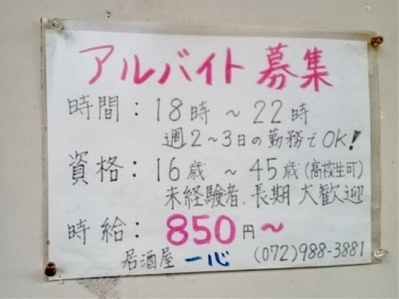 アルバイト募集
時間：18時～22時
週2～3日の勤務でOK!
資格：16歳～45歳(高校生可)
未経験者.長期大歓迎
時給：850円～
居酒屋 一心 (072)988-3881